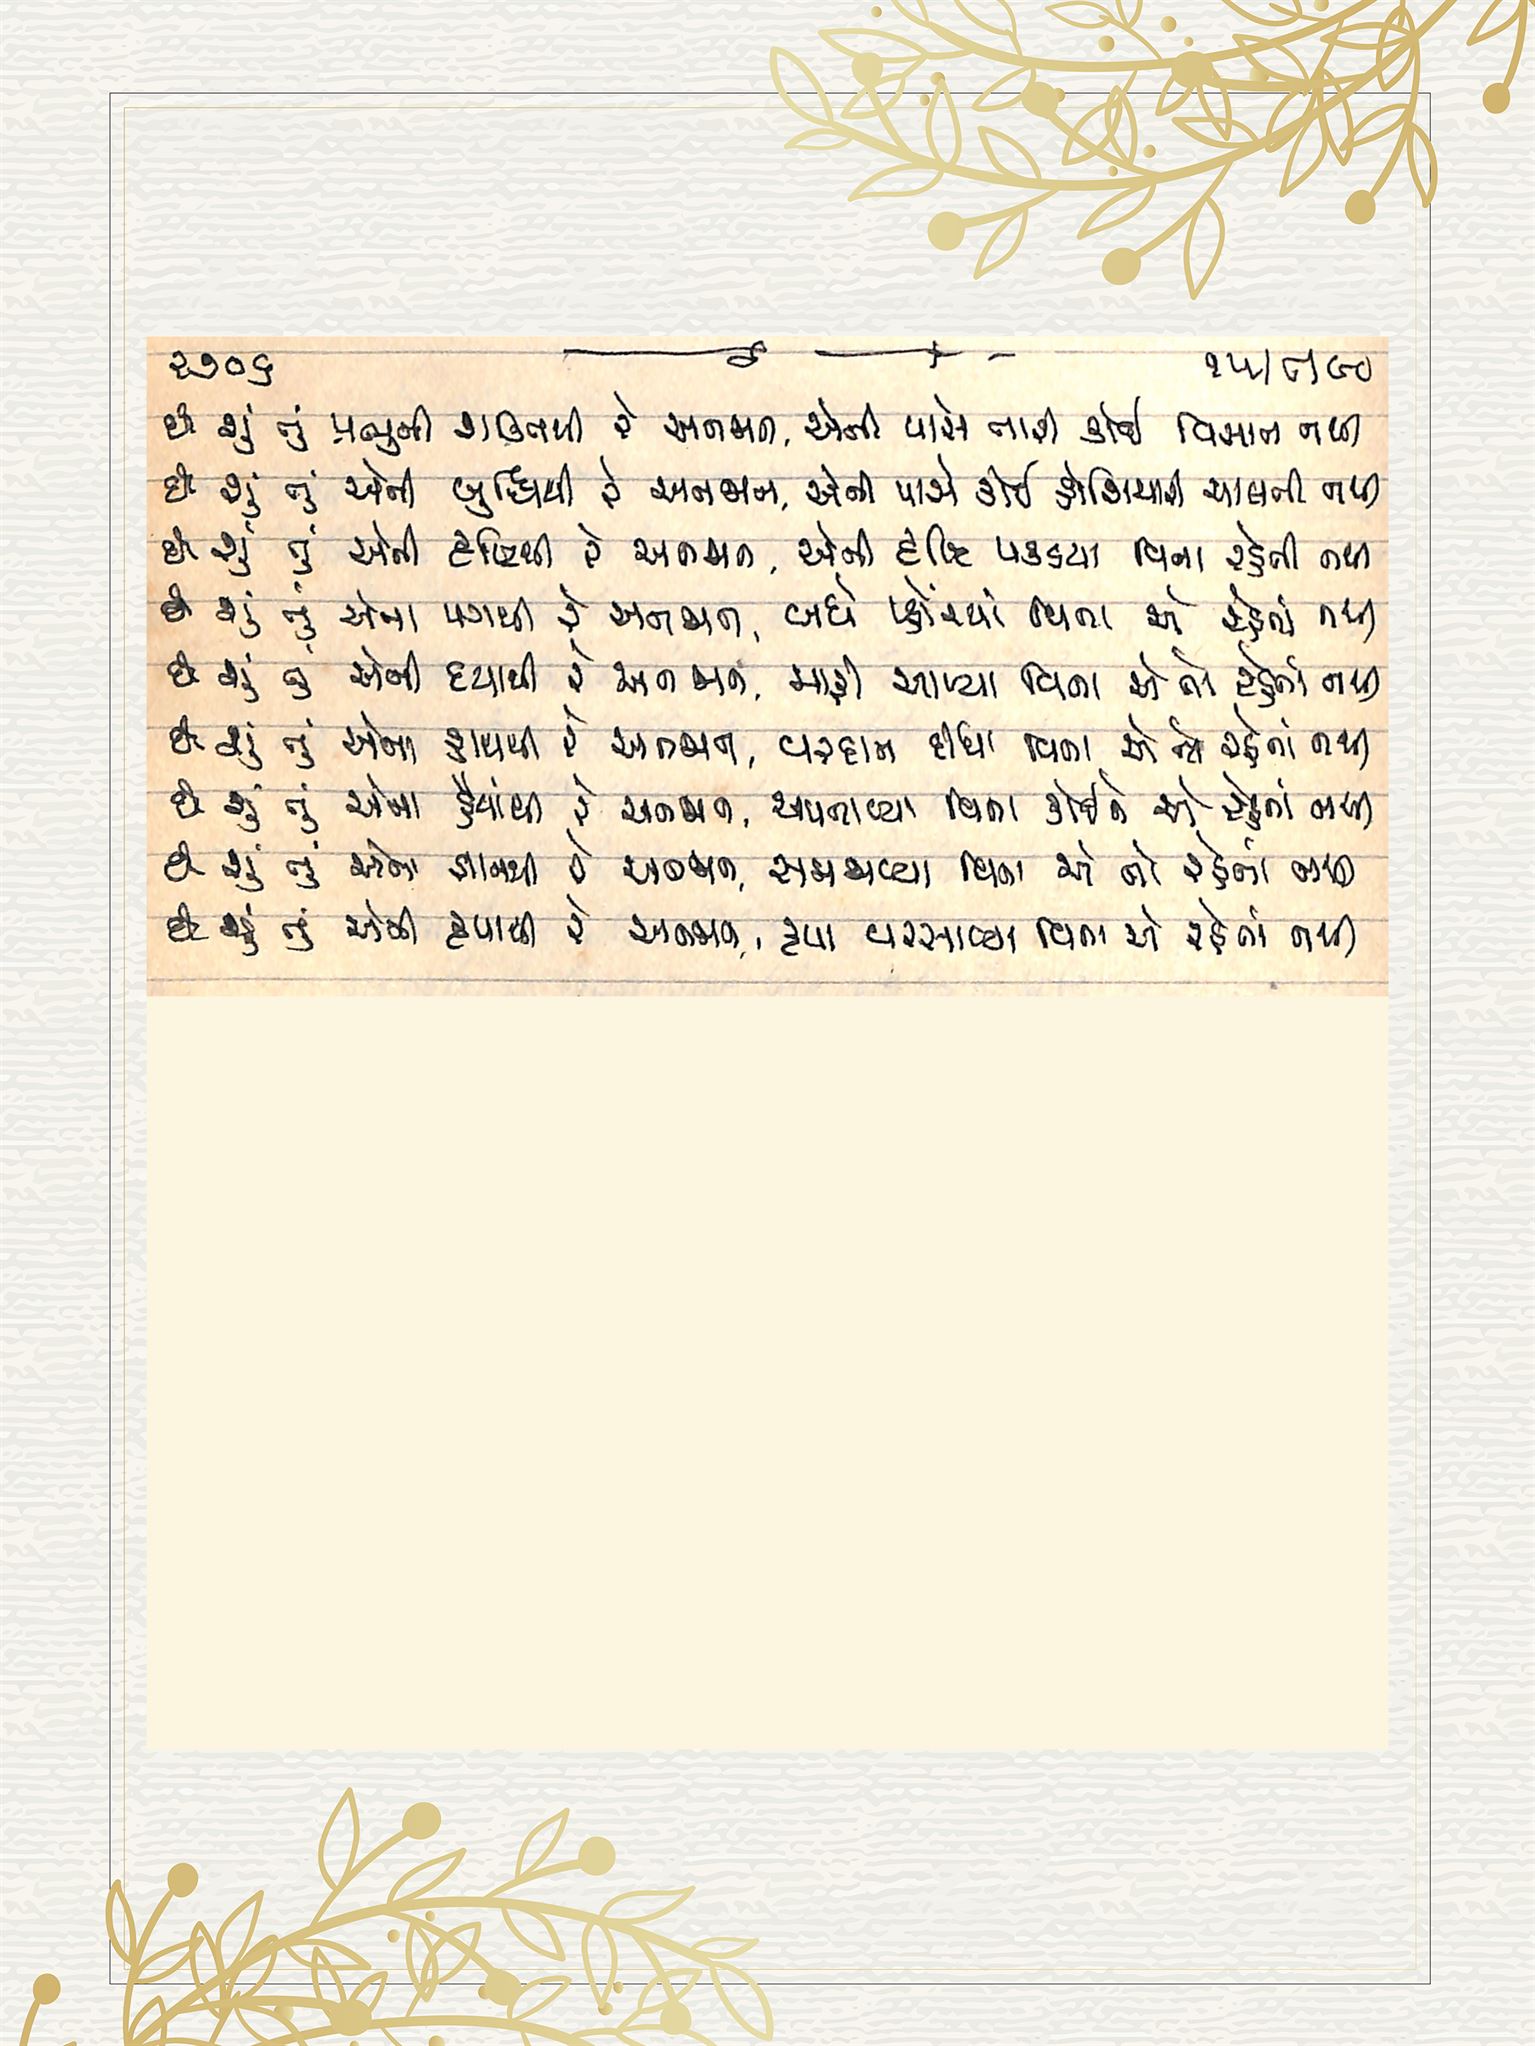 ૨૭૦૬ ૧૫/૮/૯૦
છે શું તું પ્રભુની શક્તિથી રે અનજાન, એની પાસે તારી કોઈ વિસાત નથી
છે શું તું એની બુદ્ધિથી રે અનજાન, એની પાસે કોઈ હોશિયારી ચાલતી નથી
છે શું તું એની દૃષ્ટિથી રે અનજાન, એની દૃષ્ટિ પકડયા વિના રહેતી નથી
છે શું તું એના પગથી રે અનજાન, બધે પહોંચ્યાં વિના એ રહેતાં નથી
છે શું તું એની દયાથી રે અનજાન, માફી આપ્યા વિના એ તો રહેતાં નથી
છે શું તું એના હાથથી રે અનજાન, વરદાન દીધા વિના એ તો રહેતાં નથી
છે શું તું એના હૈયાંથી રે અનજાન, અપનાવ્યા વિના કોઈને એ રહેતાં નથી
છે શું તું એના જ્ઞાનથી રે અનજાન, સમજાવ્યા વિના એ તો રહેતાં નથી
છે શું તું એની કૃપાથી રે અનજાન, કૃપા વરસાવ્યા વિના એ રહેતાં નથી